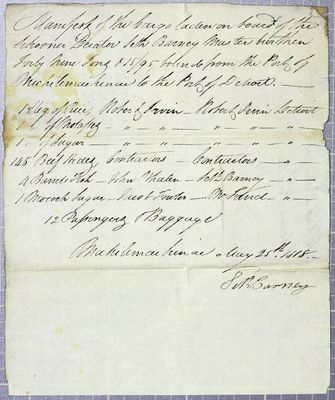 Manifest of the Cargo laden on board of the
Schooner Decator Seth Barney Master burthen
forty nine Tons & 15/95 bound from the Port of
Michilimackinac to the Port of Detroit. —
1 Keg of Robert Irvin — Robert Irvin Detroit
1 " of " " — " " — "
1 " of Sugar — " " — " " — "
145 Beef Hides Contractors — Contractors — "
4 Barrels Fish — John — Seth Barney — "
1 Mocock Sugar — Jacob — — "
12 Passengers & Baggage
Michilimackinac May 25th 1818 —
Seth Barney